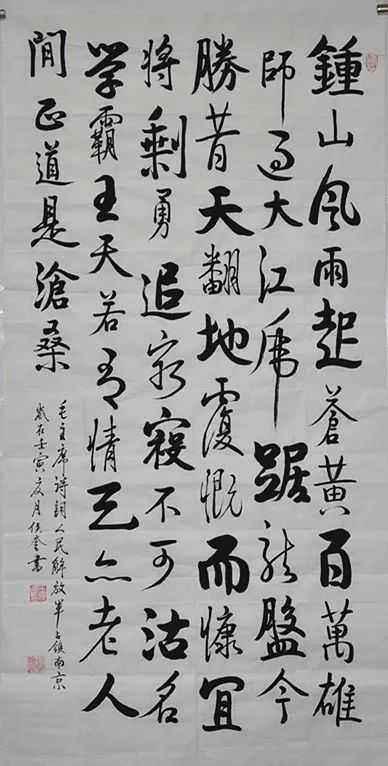 鍾山風雨起蒼黃百萬雄
師過大江虎踞龍盤今
勝昔天翻地覆慨而慷宜
將剩勇追窮寇不可沽名
学霸王天若有情天亦老人
間正道是滄桑
毛主席詩詞人民解放軍占領南京
歲在壬寅夏月侯奎書